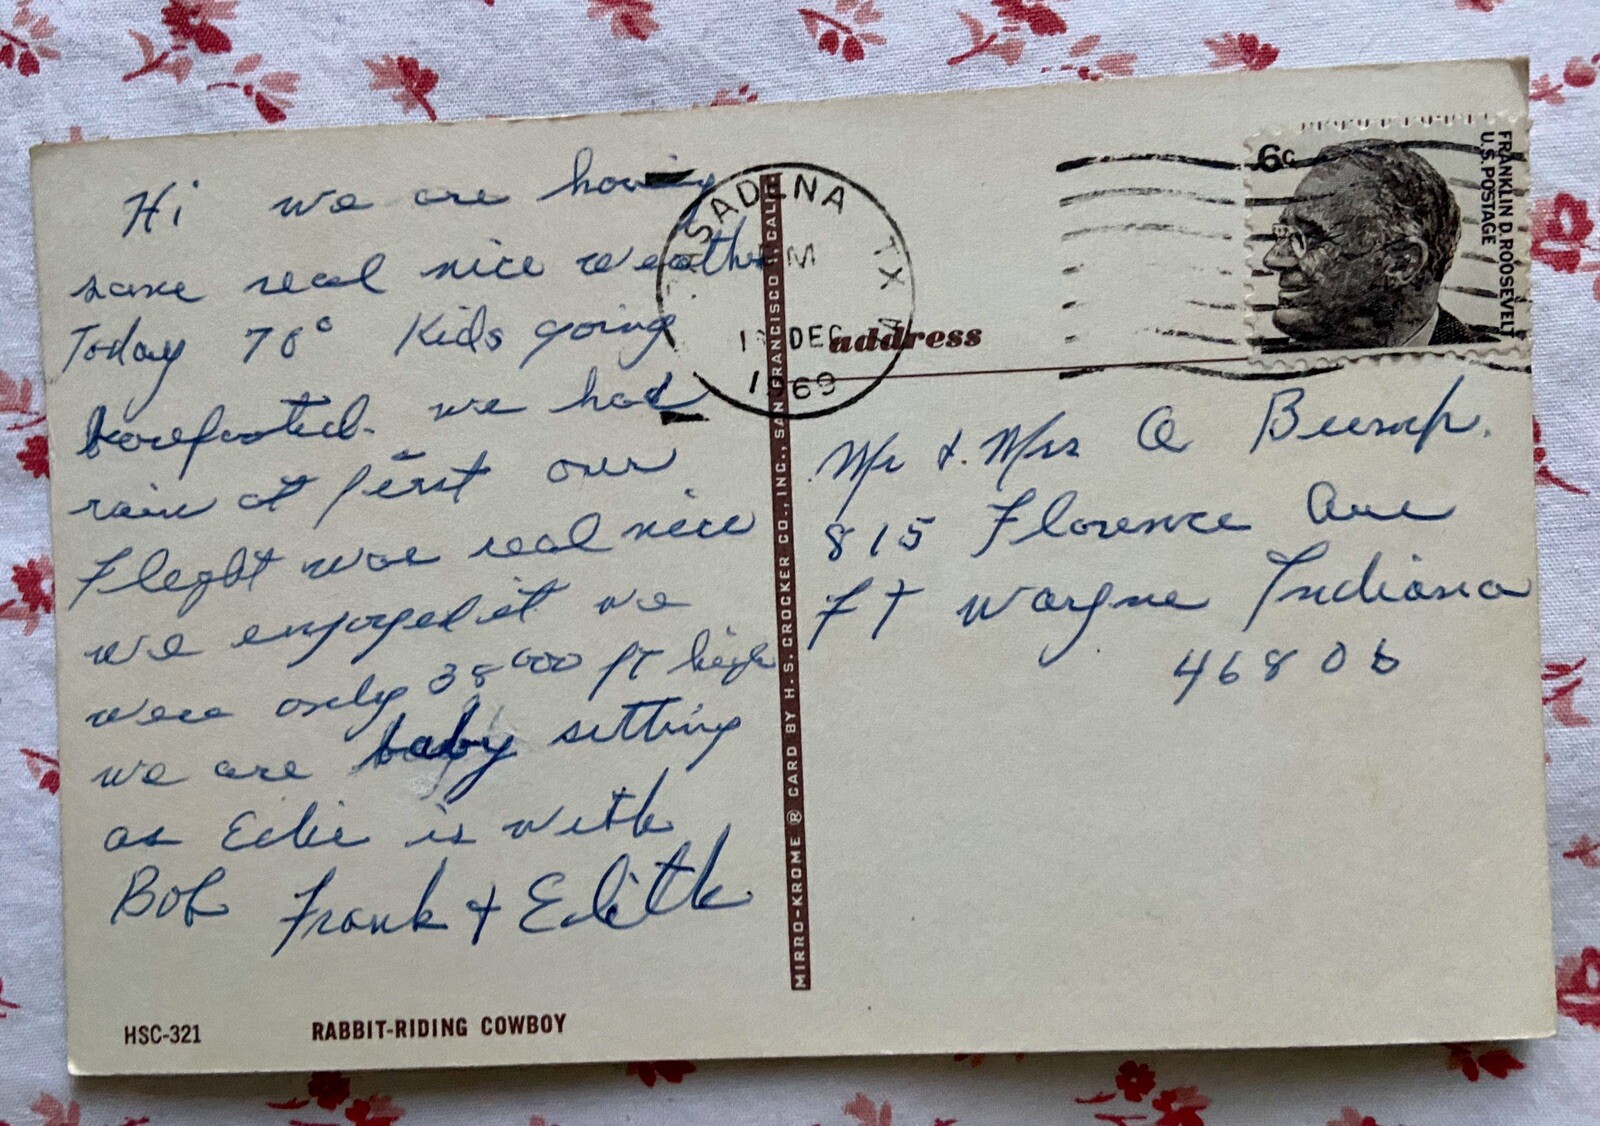 Hi we are having
some real nice weather
Today 78° Kids going
barefooted. we had
rain at first our
Flight was real nice
we enjoyed it we
were only 38000 ft high
we are baby setting
as Edie is with
Bob Frank & Edith
HSC-321
RABBIT-RIDING COWBOY
MIRRO-KROME ® CARD BY H. S. CROCKER CO., INC., SAN FRANCISCO 1, CALIF.
SADENA TX
M
DEC
1969
6c
FRANKLIN D. ROOSEVELT
U.S. POSTAGE
address
Mr & Mrs A Bump.
815 Florence Ave
Ft Wayne Indiana
46808